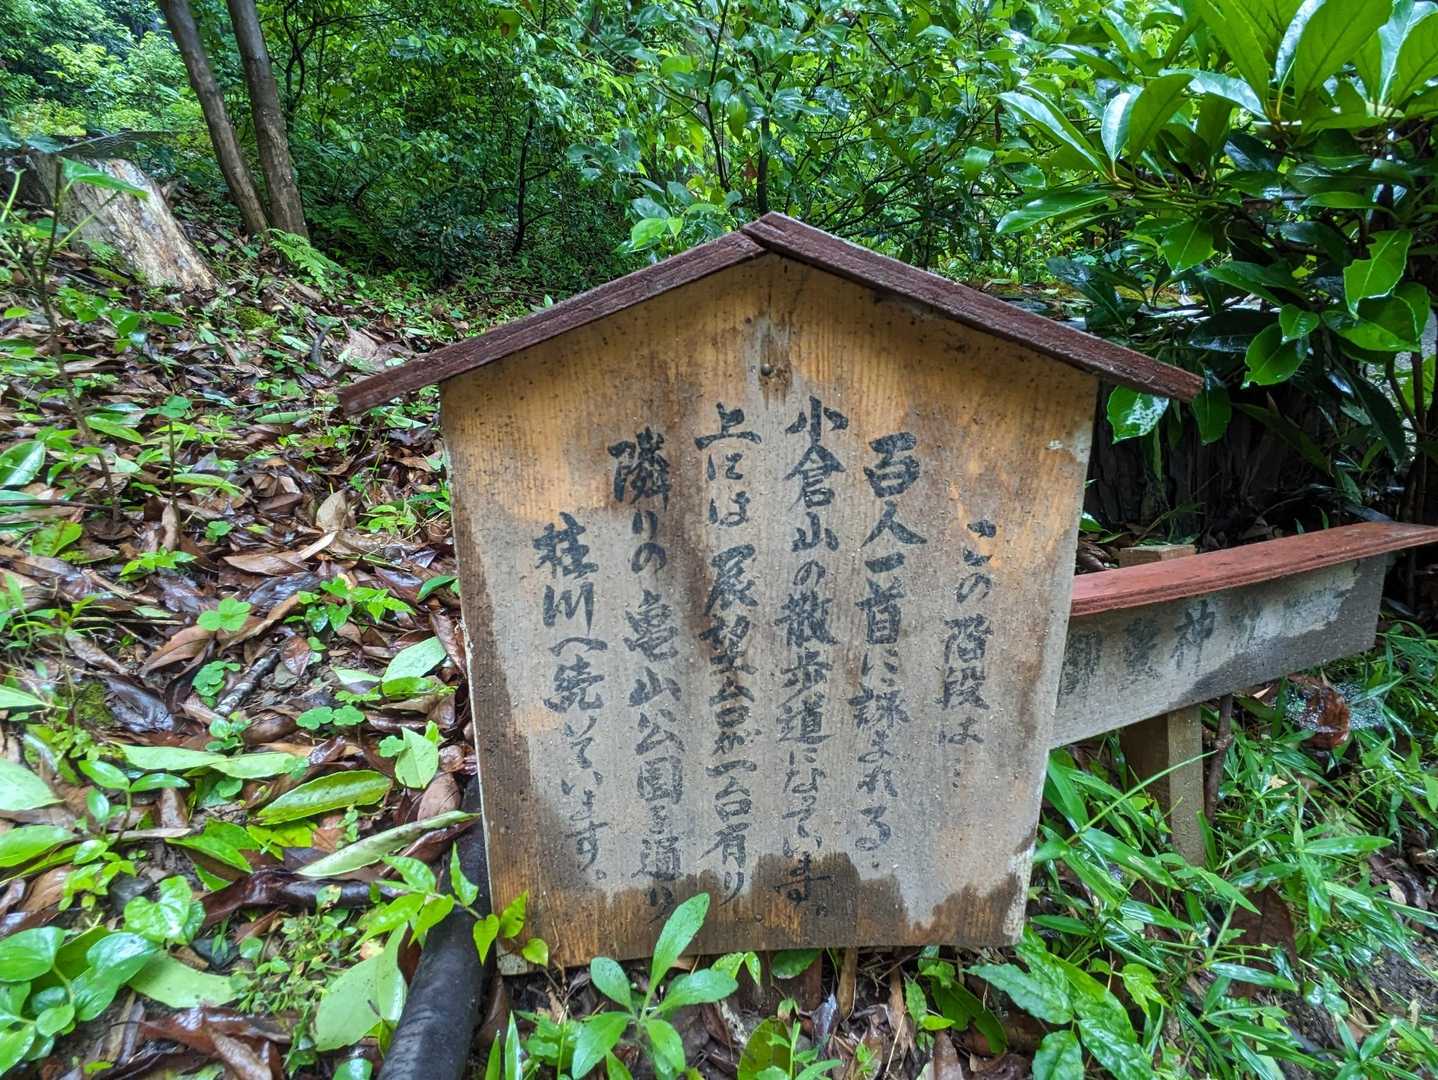 この階段は…
百人一首に詠まれる.
小倉山の散歩道になっています。
上には展望台が一台有り
隣りの亀山公園を通り
桂川へ続いています。
御霊神